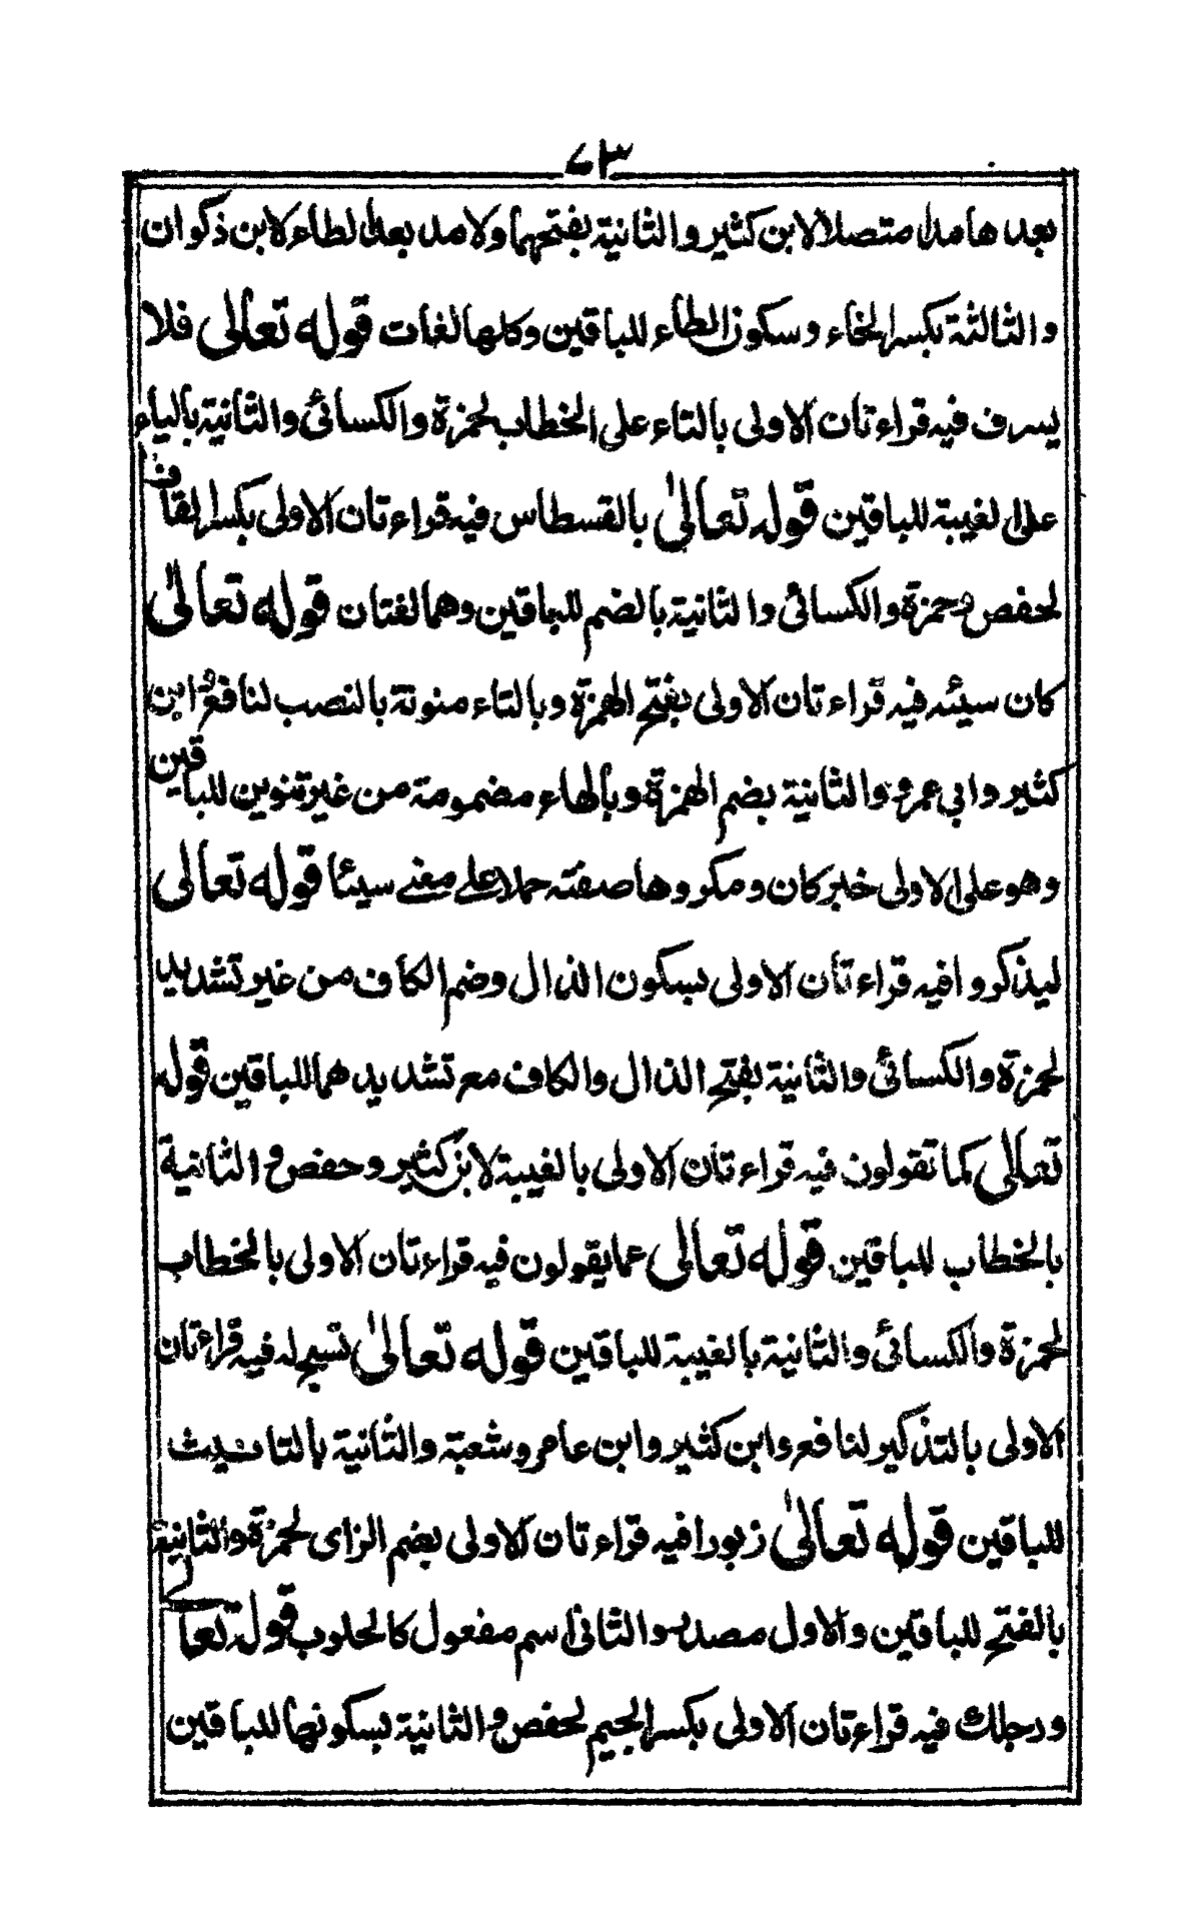 ٧٣
بعدها مدا متصلا لابن كثير والثانية بفتحهما ولا مد بعد الطاء لابن ذكوان
والثالثة بكسر الخاء وسكون الطاء للباقين وكلها لغات قوله تعالى فلا
يسرف فيه قراءتان الاولى بالتاء على الخطاب لحمزة والكسائى والثانية بالياء
على الغيبة للباقين قوله تعالىٰ بالقسطاس فيه قراءتان الاولى بكسر القاف
لحفص وحمزة والكسائى والثانية بالضم للباقين وهما لغتان قوله تعالىٰ
كان سيئه فيه قراءتان الاولى بفتح الهمزة وبالتاء منونة بالنصب لنافع وابن
كثير وابى عمرو والثانية بضم الهمزة وبالهاء مضمومة من غير تنوين للباقين
وهو على الاولى خبر كان ومكروها صفته حملا على معنى سيئا قوله تعالى
ليذكروا فيه قراءتان الاولى بسكون الذال وضم الكاف من غير تشديد
لحمزة والكسائى والثانية بفتح الذال والكاف مع تشديدهما للباقين قوله
تعالى كما تقولون فيه قراءتان الاولى بالغيبة لابن كثير وحفص والثانية
بالخطاب للباقين قوله تعالى عما يقولون فيه قراءتان الاولى بالخطاب
لحمزة والكسائى والثانية بالغيبة للباقين قوله تعالىٰ تسبح له فيه قراءتان
الاولى بالتذكير لنافع وابن كثير وابن عامر وشعبة والثانية بالتانيث
للباقين قوله تعالىٰ زبورا فيه قراءتان الاولى بضم الزاى لحمزة والثانية
بالفتح للباقين والاول مصدر والثانى اسم مفعول كالحلوب قوله تعالى
ورجلك فيه قراءتان الاولى بكسر الجيم لحفص والثانية بسكونها للباقين